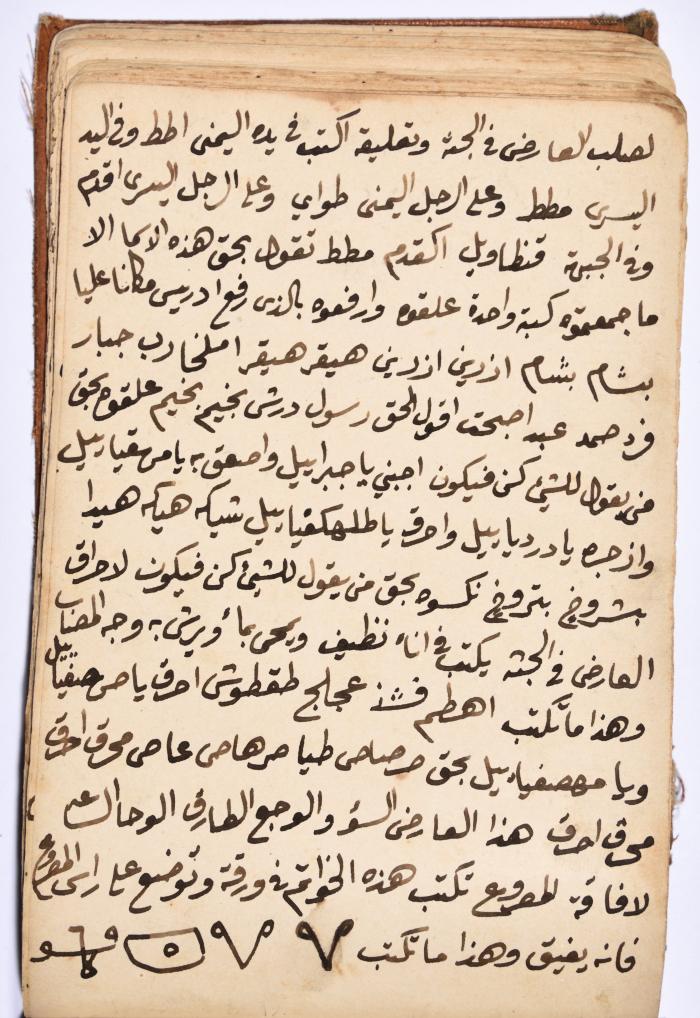 لصلب العارض في الجثة وتعليقه اكتب في يده اليمنى اطط وفي اليد
اليسرى مطط وعلى الرجل اليمنى طواي وعلى الرجل اليسرى اقدم
وفي الجبهة قنطاويل اكقدم مطط تقول بحق هذه الاسما الا
ما جمعتموه كبة واحدة علقوه وارفعوه بالذي رفع ادريس مكانا عليا
بشام بشام ازرين ازرين هيقر هيقر املخا رب جبار
فرد صمد عبد اصبحت اقول الحق رسول درش بخيم بخيم علقوه بحق
من يقول للشيئ كن فيكون اجبني يا جبراييل واصعق به يا مرهقياييل
وازجره يا دردياييل واحرق يا طلهكفياييل شيكه هيكه هيدا
بشروخ بتروخ نكسوه بحق من يقول للشيئ كن فيكون لاحراق
العارض في الجثه يكتب في اناء نظيف ويمحى بماء ويرش به وجه المصاب
وهذا ما تكتب اهطم فشذ عجلج طقطوش احرق يا صرصفياييل
ويا مهصفياييل بحق صرصاص طياصرهاص عاص محرق احرق
محرق احرق هذا العارض السؤ والوجع الطارق الوحا العجل
لافاقة المصروع تكتب هذه الخواتم في ورقة وتوضع على راس المصروع
فانه يفيق وهذا ما تكتب